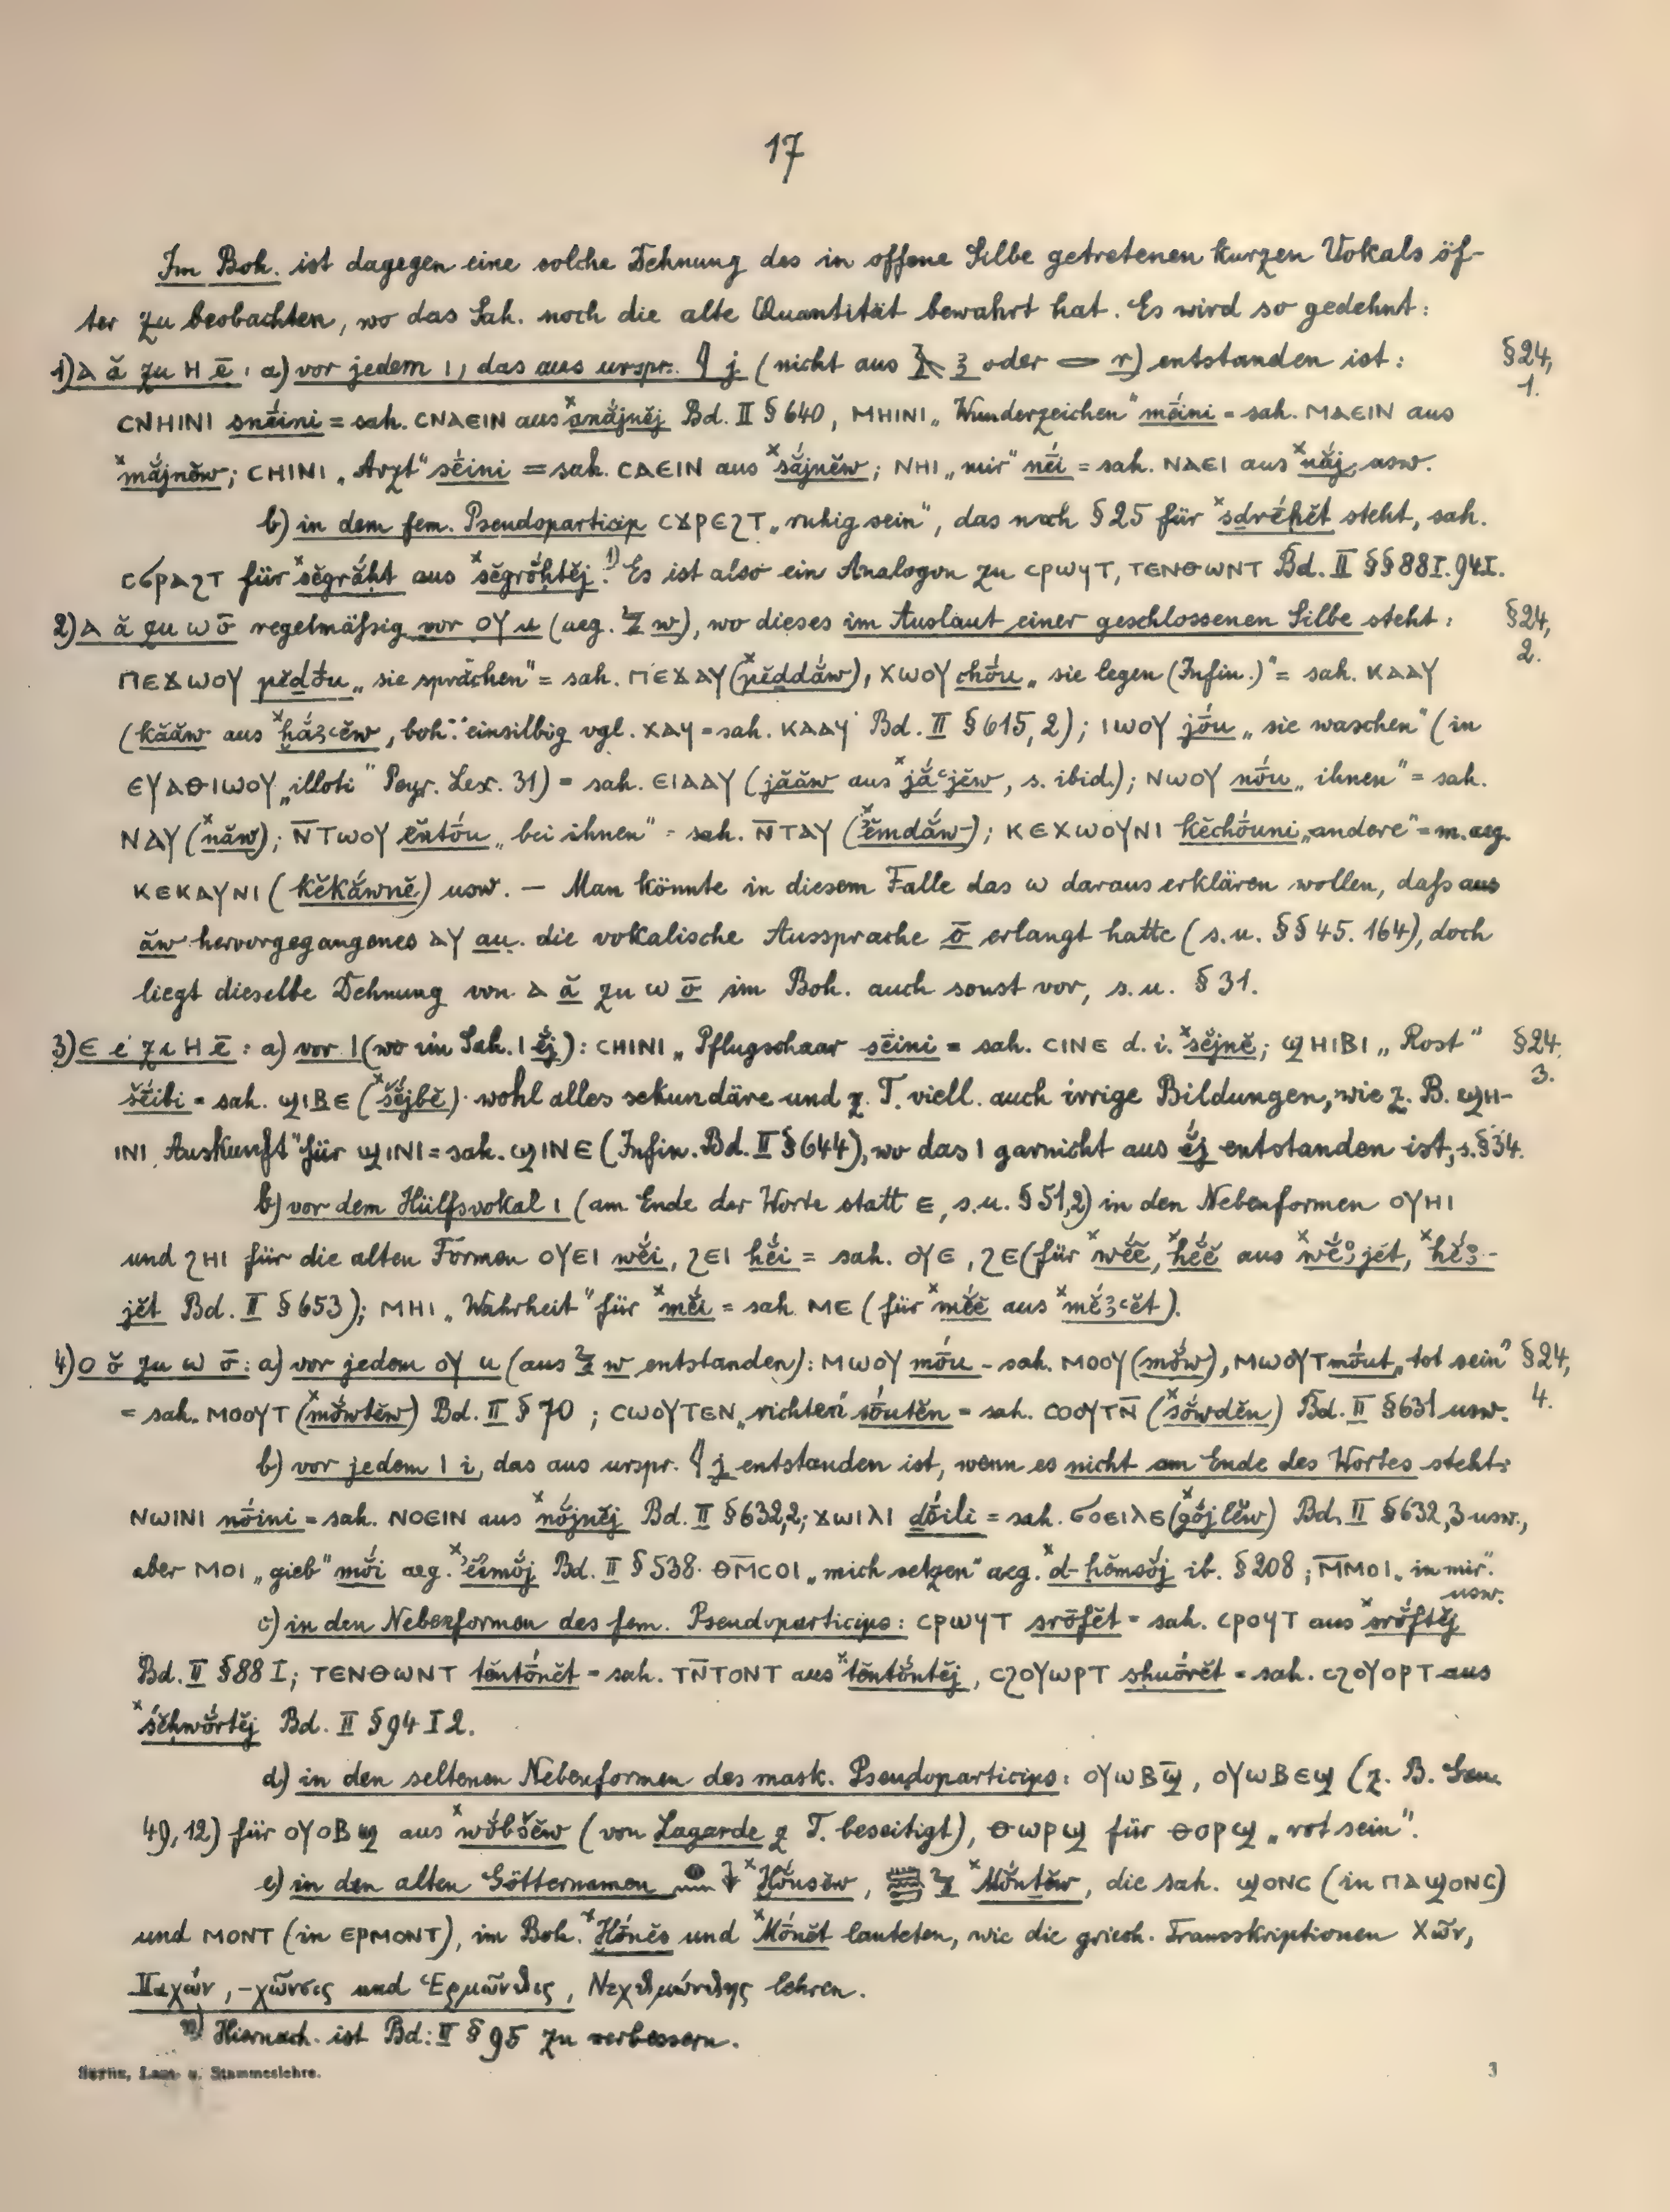 17
Im Boh. ist dagegen eine solche Dehnung des in offene Silbe getretenen kurzen Vokals öf-
ter zu beobachten, wo das Sah. noch die alte Quantität bewahrt hat. Es wird so gedehnt:
1) ⲁ ă zu ⲏ ē: a) vor jedem ⲓ, das aus urspr. 𓇋 j (nicht aus 𓄿 ꜣ oder 𓂋 r) entstanden ist: §24, 1.
ⲥⲛⲏⲓⲛⲓ snḗini = sah. ⲥⲛⲁⲉⲓⲛ aus Bd. II § 640, ⲙⲏⲓⲛⲓ „Wunderzeichen" mḗini = sah. ⲙⲁⲉⲓⲛ aus
ˣmắjnĕw; ⲥⲏⲓⲛⲓ „Arzt" sḗini = sah. ⲥⲁⲉⲓⲛ aus ˣsắjnĕw; ⲛⲏⲓ „mir" nḗi = sah. ⲛⲁⲉⲓ aus ˣnắj, usw.
b) in dem fem. Pseudoparticip ⲥϫⲣⲉϩⲧ „ruhig sein", das nach §25 für ˣsdrḗhĕt steht, sah.
ⲥϭⲣⲁϩⲧ für ˣsĕgrắḥt aus ˣsĕgrắḥtĕj.¹⁾ Es ist also ein Analogon zu ⲥⲣⲱϥⲧ, ⲧⲉⲛⲑⲱⲛⲧ Bd. II §§ 88 I. 94 I.
2) ⲁ ă zu ⲱ ō regelmäßig vor ⲟⲩ u (aeg. 𓏲 w), wo dieses im Auslaut einer geschlossenen Silbe steht: §24, 2.
ⲡⲉϫⲱⲟⲩ pĕdṓu „sie sprächen" = sah. ⲡⲉϫⲁⲩ (ˣpĕddắw), ⲭⲱⲟⲩ chṓu „sie legen (Infin.)" = sah. ⲕⲁⲁⲩ
(kắăw aus ˣḫắꜣꜥĕw, boh. einsilbig vgl. ⲭⲁⲩ = sah. ⲕⲁⲁⲩ Bd. II § 615,2); ⲓⲱⲟⲩ jṓu „sie waschen" (in
ⲉⲩⲁⲑⲓⲱⲟⲩ „illoti" Peyr. Lex. 31) = sah. ⲉⲓⲁⲁⲩ (jắăw aus ˣjắꜥjĕw, s. ibid.); ⲛⲱⲟⲩ nṓu „ihnen" = sah.
ⲛⲁⲩ (ˣnắw); ⲛ̅ⲧⲱⲟⲩ ĕntṓu „bei ihnen" = sah. ⲛ̅ⲧⲁⲩ (ˣĕmdắw); ⲕⲉⲭⲱⲟⲩⲛⲓ kĕchṓuni „andere" = m. aeg.
ⲕⲉⲕⲁⲩⲛⲓ (kĕkắwnĕ) usw. — Man könnte in diesem Falle das ⲱ daraus erklären wollen, daß aus
ăw hervorgegangenes ⲁⲩ au die vokalische Aussprache ō erlangt hatte (s.u. §§ 45. 164), doch
liegt dieselbe Dehnung von ⲁ ă zu ⲱ ō im Boh. auch sonst vor, s. u. § 31.
3) ⲉ ĕ zu ⲏ ē: a) vor ⲓ (wo im Sah. ⲓ ĕ́j): ⲥⲏⲓⲛⲓ „Pflugschaar sḗini = sah. ⲥⲓⲛⲉ d. i. ˣsĕ́jnĕ; ϣⲏⲓⲃⲓ „Rost" §24. 3.
šḗibi = sah. ϣⲓⲃⲉ (ˣšĕ́jbĕ). wohl alles sekundäre und z. T. viell. auch irrige Bildungen, wie z. B. ϣⲏ-
ⲓⲛⲓ „Auskunft" für ϣⲓⲛⲓ = sah. ϣⲓⲛⲉ (Infin. Bd. II § 644), wo das ⲓ garnicht aus ĕ́j entstanden ist, s. § 34.
b) vor dem Hülfsvokal ⲓ (am Ende der Worte statt ⲉ, s.u. § 51,2) in den Nebenformen ⲟⲩⲏⲓ
und ϩⲏⲓ für die alten Formen ⲟⲩⲉⲓ wĕ́i, ϩⲉⲓ hĕ́i = sah. ⲟⲩⲉ, ϩⲉ (für ˣwĕ́ĕ, ˣhĕ́ĕ aus ˣwĕ́ꜣjĕt, ˣhĕ́ꜣ-
jĕt Bd. II § 653); ⲙⲏⲓ „Wahrheit" für ˣmĕ́i = sah. ⲙⲉ (für ˣmĕ́ĕ aus ˣmĕ́ꜣꜥĕt).
4) ⲟ ŏ zu ⲱ ō: a) vor jedem ⲟⲩ u (aus 𓏲 w entstanden): ⲙⲱⲟⲩ mṓu = sah. ⲙⲟⲟⲩ (mŏ́w), ⲙⲱⲟⲩⲧ mṓut „tot sein" §24, 4.
= sah. ⲙⲟⲟⲩⲧ (ˣmŏ́wtĕw) Bd. II § 70; ⲥⲱⲟⲩⲧⲉⲛ „richten" sṓutĕn = sah. ⲥⲟⲟⲩⲧⲛ̅ (ˣsŏ́wdĕn) Bd. II § 631 usw.
b) vor jedem ⲓ i, das aus urspr. 𓇋 j entstanden ist, wenn es nicht am Ende des Wortes steht:
ⲛⲱⲓⲛⲓ nṓini = sah. ⲛⲟⲉⲓⲛ aus ˣnŏ́jnĕj Bd. II § 632,2; ϫⲱⲓⲗⲓ dṓili = sah. ϭⲟⲉⲓⲗⲉ (ˣgŏ́jlĕw) Bd. II § 632,3 usw.,
aber ⲙⲟⲓ „gieb" mŏ́i aeg. Bd. II § 538. ⲑⲙ̅ⲥⲟⲓ „mich setzen" aeg. ˣd-ḥĕmsŏ́j ib. § 208; ⲙ̅ⲙⲟⲓ „in mir". usw.
c) in den Nebenformen des fem. Pseudoparticips: ⲥⲣⲱϥⲧ srōfĕt = sah. ⲥⲣⲟϥⲧ aus ˣsrŏ́ftĕj
Bd. II § 88 I; ⲧⲉⲛⲑⲱⲛⲧ tĕntṓnĕt = sah. ⲧⲛ̅ⲧⲟⲛⲧ aus ˣtĕntŏ́ntĕj, ⲥϩⲟⲩⲱⲣⲧ shuṓrĕt = sah. ⲥϩⲟⲩⲟⲣⲧ aus
ˣsĕḥwŏ́rtĕj Bd. II § 94 I 2.
d) in den seltenen Nebenformen des mask. Pseudoparticips: ⲟⲩⲱⲃϣ̅, ⲟⲩⲱⲃⲉϣ (z. B. Gen.
49,12) für ⲟⲩⲟⲃϣ aus ˣwŏ́bšĕw (von Lagarde z T. beseitigt), ⲑⲱⲣϣ für ⲑⲟⲣϣ „rot sein".
e) in den alten Götternamen ˣḪŏ́nsĕw, ˣMŏ́ntĕw, die sah. ϣⲟⲛⲥ (in ⲡⲁϣⲟⲛⲥ)
und ⲙⲟⲛⲧ (in ⲉⲣⲙⲟⲛⲧ), im Boh. ˣḪṓnĕs und ˣMṓnĕt lauteten, wie die griech. Transskriptionen Χῶν,
Παχών, -χῶνσις und Ἑρμῶνθις, Νεχθμώνθης lehren.
¹⁾ Hiernach ist Bd. II § 95 zu verbessern.
Sethe, Laut- u. Stammeslehre.
3